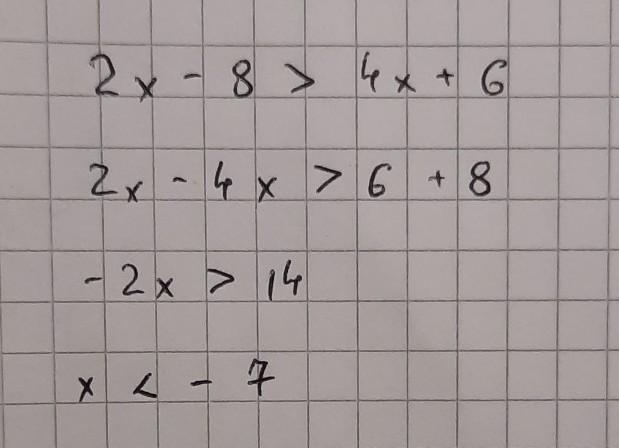 2x - 8 > 4x + 6
2x - 4x > 6 + 8
-2x > 14
x < - 7